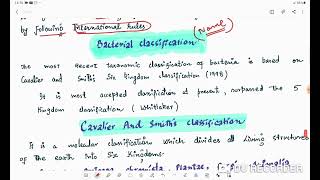 by Following International Rules
(Name)
Bacterial classification
The most Recent Taxonomic classification of bacteria is based on
Cavalier and Smith's Six kingdom classification (1998)
It is most accepted classification at present, surpassed the 5
Kingdom classification (Whittaker)
Cavalier And Smith's classification
It is a molecular classification which divides all Living structures
of the earth into Six Kingdoms.
chromista, Plantae,
RECORDER